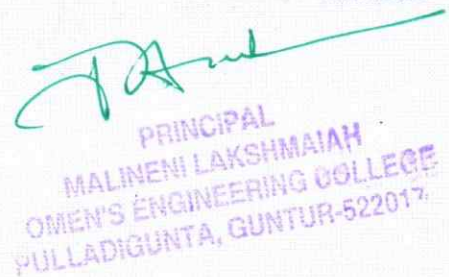 PRINCIPAL
MALINENI LAKSHMAIAH
OMEN'S ENGINEERING COLLEGE
PULLADIGUNTA, GUNTUR-522017.